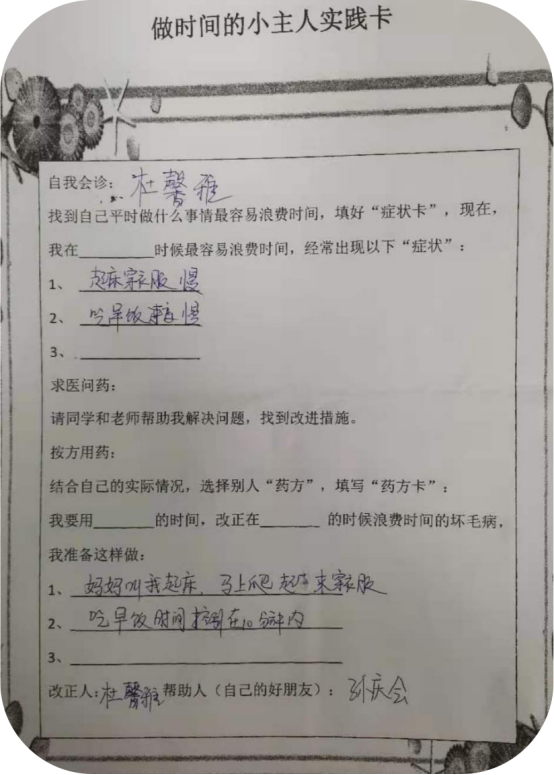 做时间的小主人实践卡
自我会诊：杜馨雅
找到自己平时做什么事情最容易浪费时间，填好“症状卡”，现在，
我在________时候最容易浪费时间，经常出现以下“症状”：
1、起床穿衣服慢
2、吃早饭速度慢
3、
求医问药：
请同学和老师帮助我解决问题，找到改进措施。
按方用药：
结合自己的实际情况，选择别人“药方”，填写“药方卡”：
我要用_______的时间，改正在_______ 的时候浪费时间的坏毛病，
我准备这样做：
1、妈妈叫我起床，马上爬起来穿衣服
2、吃早饭时间控制在10分钟内
3、
改正人：杜馨雅 帮助人（自己的好朋友）：孙庆会